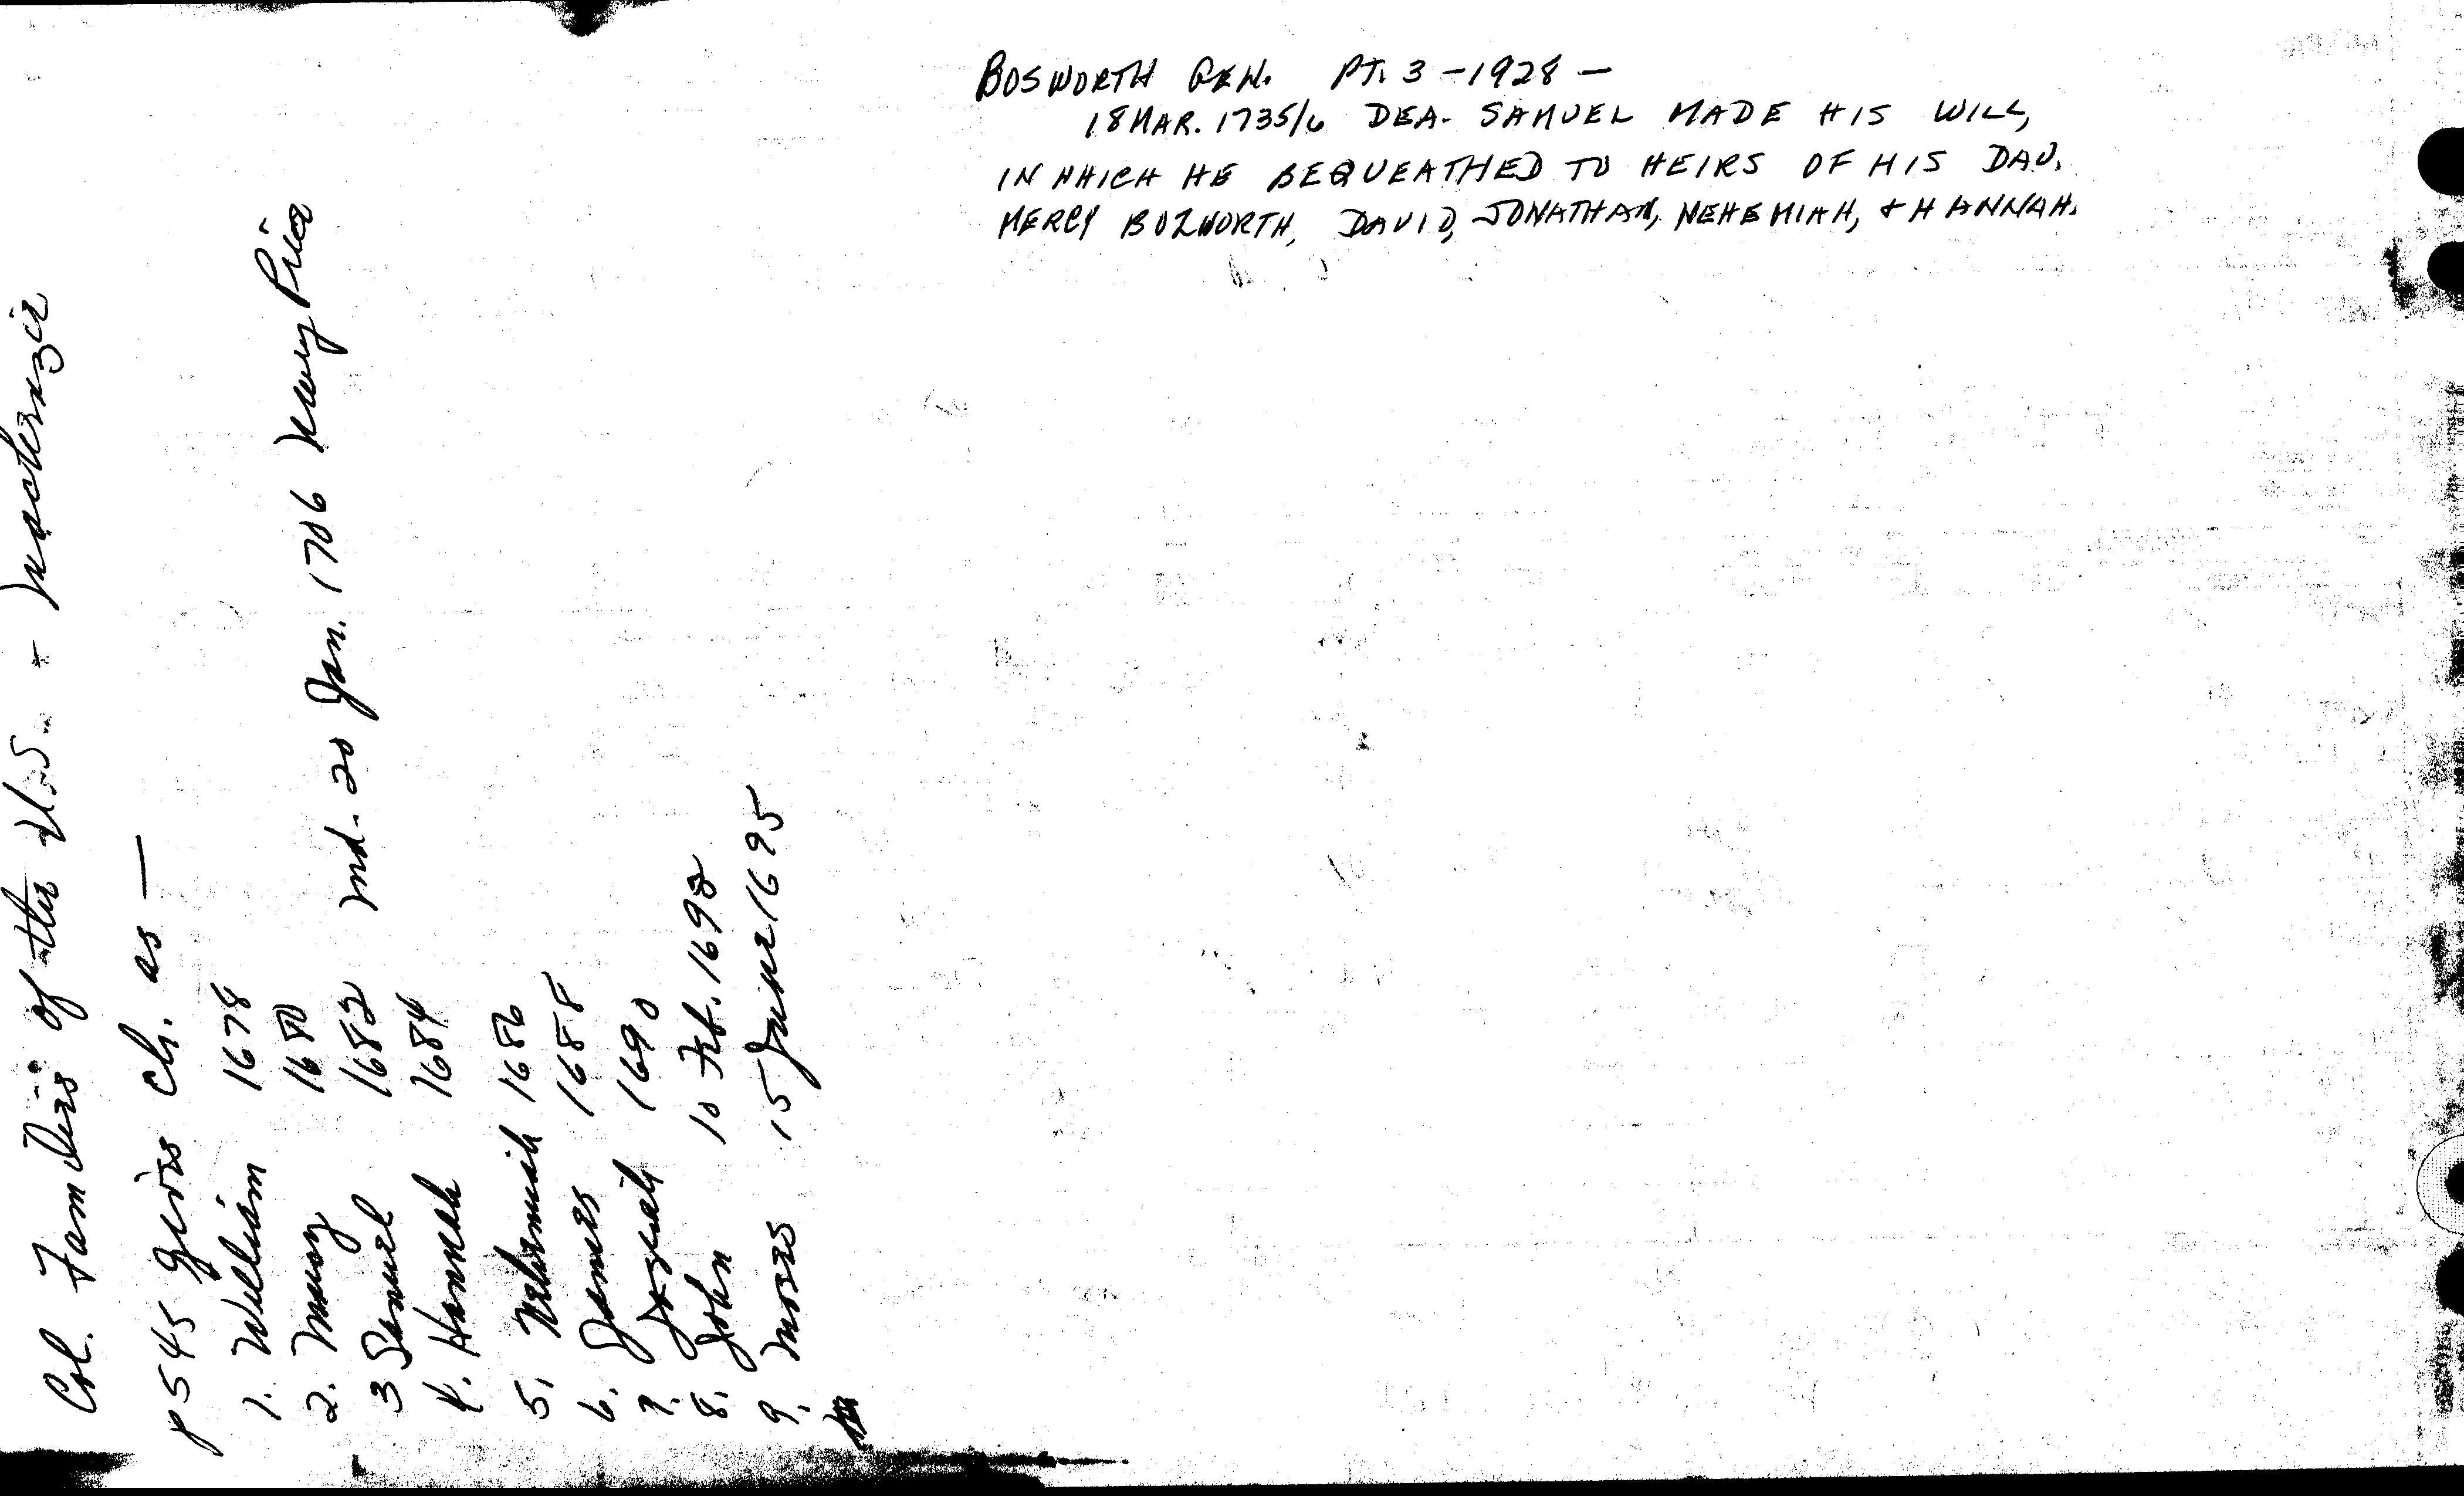 BOSWORTH GEN. PT. 3 - 1928 -
18 MAR. 1735/6 DEA. SAMUEL MADE HIS WILL,
IN WHICH HE BEQUEATHED TO HEIRS OF HIS DAU.
MERCY BOZWORTH, DAVID, JONATHAN, NEHEMIAH, & HANNAH.
Col. Families of the U.S. - Mackenzie
p 545 gives ch. as —
1. William 1678
2. Mercy 1680
3 Samuel 1682 md. 20 Jan. 1706 Mary Price
4. Hannah 1684
5. Nehemiah 1686
6. James 1688
7. Josiah 1690
8. John 10 Feb. 1692
9. Moses 15 June 1695